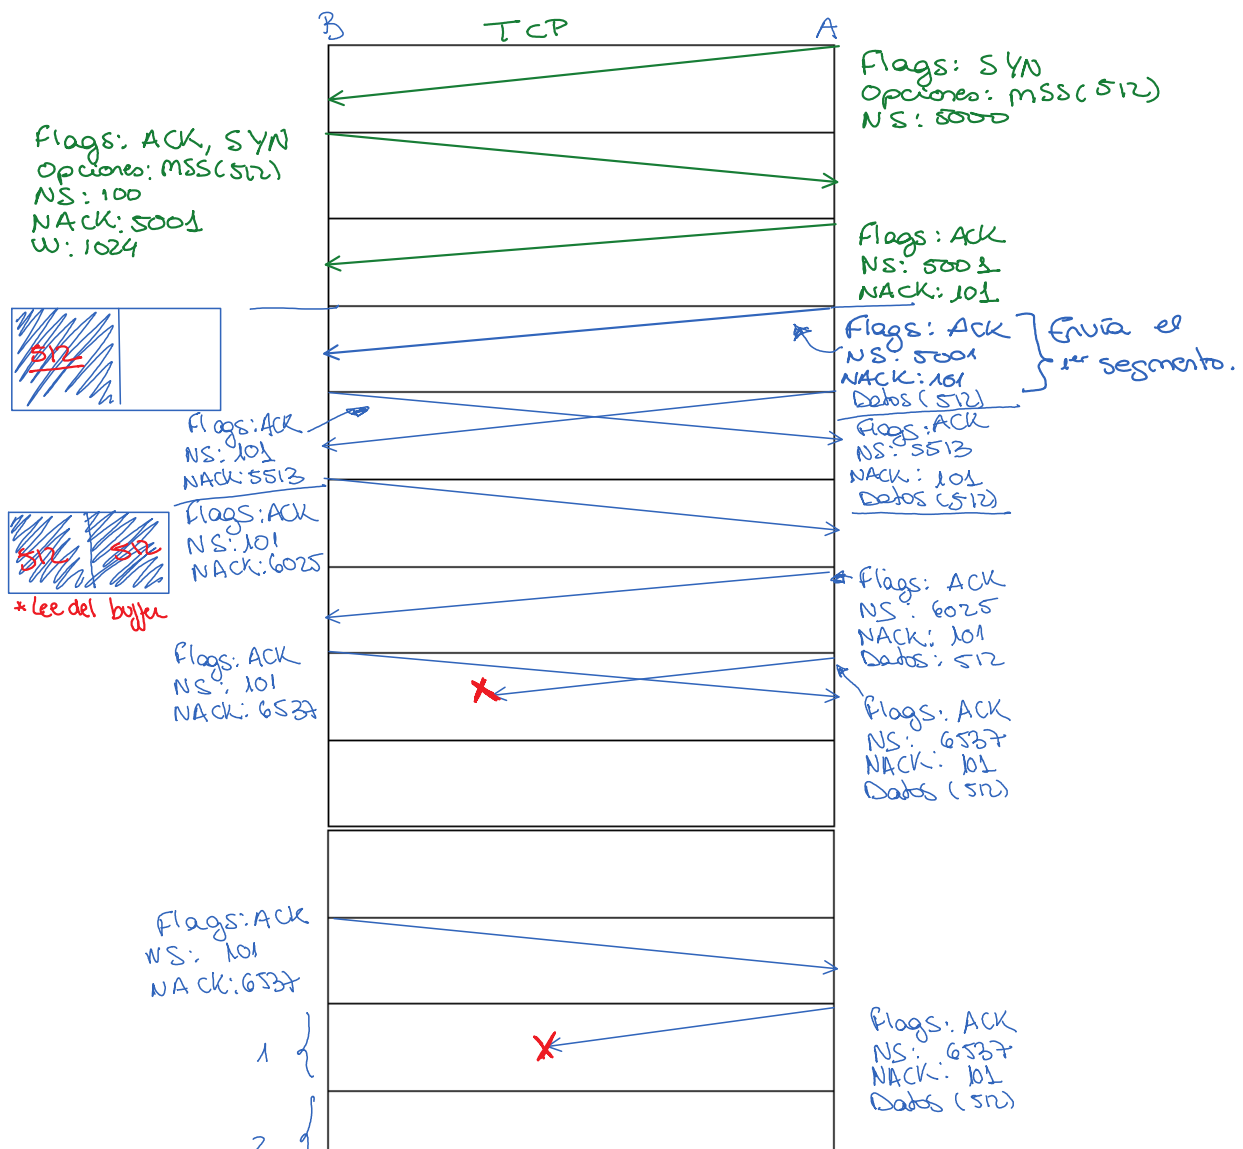 B TCP A
Flags: SYN
Opciones: MSS(512)
NS: 5000
Flags: ACK, SYN
Opciones: MSS(512)
NS: 100
NACK: 5001
W: 1024
Flags: ACK
NS: 5001
NACK: 101
512
Flags: ACK
NS: 5001
NACK: 101
Datos (512)
Envía el
1er segmento.
Flags: ACK
NS: 101
NACK: 5513
Flags: ACK
NS: 5513
NACK: 101
Datos (512)
512 512
* Lee del buffer
Flags: ACK
NS: 101
NACK: 6025
Flags: ACK
NS: 6025
NACK: 101
Datos: 512
Flags: ACK
NS: 101
NACK: 6537
Flags: ACK
NS: 6537
NACK: 101
Datos (512)
Flags: ACK
NS: 101
NACK: 6537
1
Flags: ACK
NS: 6537
NACK: 101
Datos (512)
2